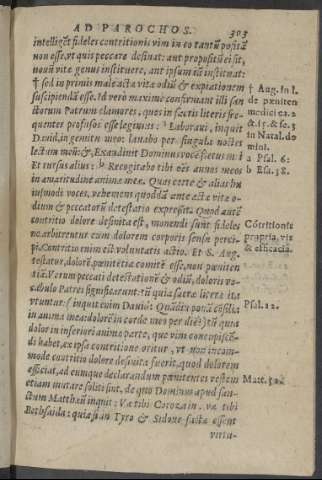 AD PAROCHOS. 303
intelligēt fideles contritionis vim in eo tantū positā
non esse, vt quis peccare desinat: aut propositū ei sit,
nouū vitæ genus instituere, aut ipsum iā instituat:
† sed in primis male actæ vitæ odiū & expiationem
suscipiendā esse. Id verò maximè confirmant illi san
ctorum Patrum clamores, quos in sacris literis fre-
quenter profusos esse legimus: a Laboraui, inquit
Dauid, in gemitu meo: lauabo per singulas noctes
lectum meū: &, Exaudiuit Dominus vocē fletus mei
Et rursus alius: b Recogitabo tibi oēs annos meos
in amaritudine animæ meæ. Quas certe & alias hu
iusmodi voces, vehemens quoddā ante actæ vitæ o-
dium & peccatorū detestatio expressit. Quod autē
contritio dolore definita est, monendi sunt fideles
ne arbitrentur eum dolorem corporis sensu perci-
pi. Contritio enim est voluntatis actio. Et S. Aug.
testatur, dolorē pœnitētiæ comitē esse, non pœniten
tiā. Verum peccati detestationē & odiū, doloris vo-
cabulo Patres significarunt: tū quia sacræ literæ ita
vtuntur: (inquit enim Dauid: Quādiu ponā cōsilia
in anima mea: dolorē in corde meo per diē?) tū quia
dolor in inferiori animæ parte, quæ vim concupiscē-
di habet, ex ipsa contritione oritur, vt non incom-
mode contritio dolore definita fuerit, quod dolorem
efficiat, ad eumque declarandum pœnitentes vestem
etiam mutare soliti sint, de quo Dominus apud san-
ctum Matthæū inquit: Væ tibi Corozain, væ tibi
Bethsaida: quia si in Tyro & Sidone factæ essent
virtu-
† Aug. in l.
de pœniten
medicina c. 2
& 15. & se. 3
in Natal. do
mini.
a Psal. 6:
b Esa. 38.
Cōtritionis
propria vis
& efficacia.
Psal. 12.
Matt.